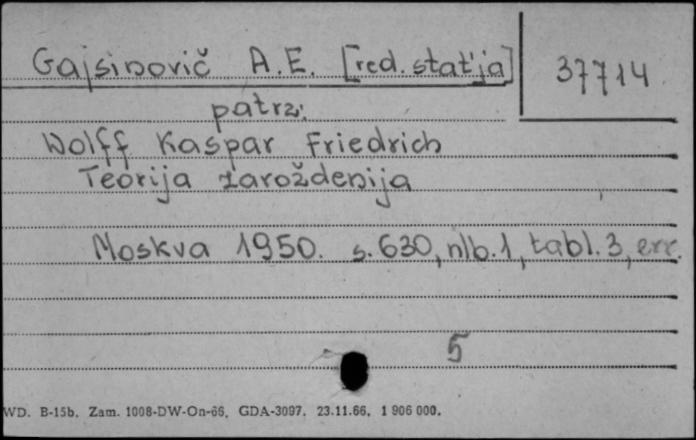 Gajsinovič A.E. [red. stat'ja] 37714
patrz:
Wolff Kaspar Friedrich
Teorija zaroždenija
Moskva 1950. s. 630, nlb. 1, tabl. 3, err.
5
WD. B-15b. Zam. 1008-DW-On-66. GDA-3097. 23.11.66. 1 906 000.